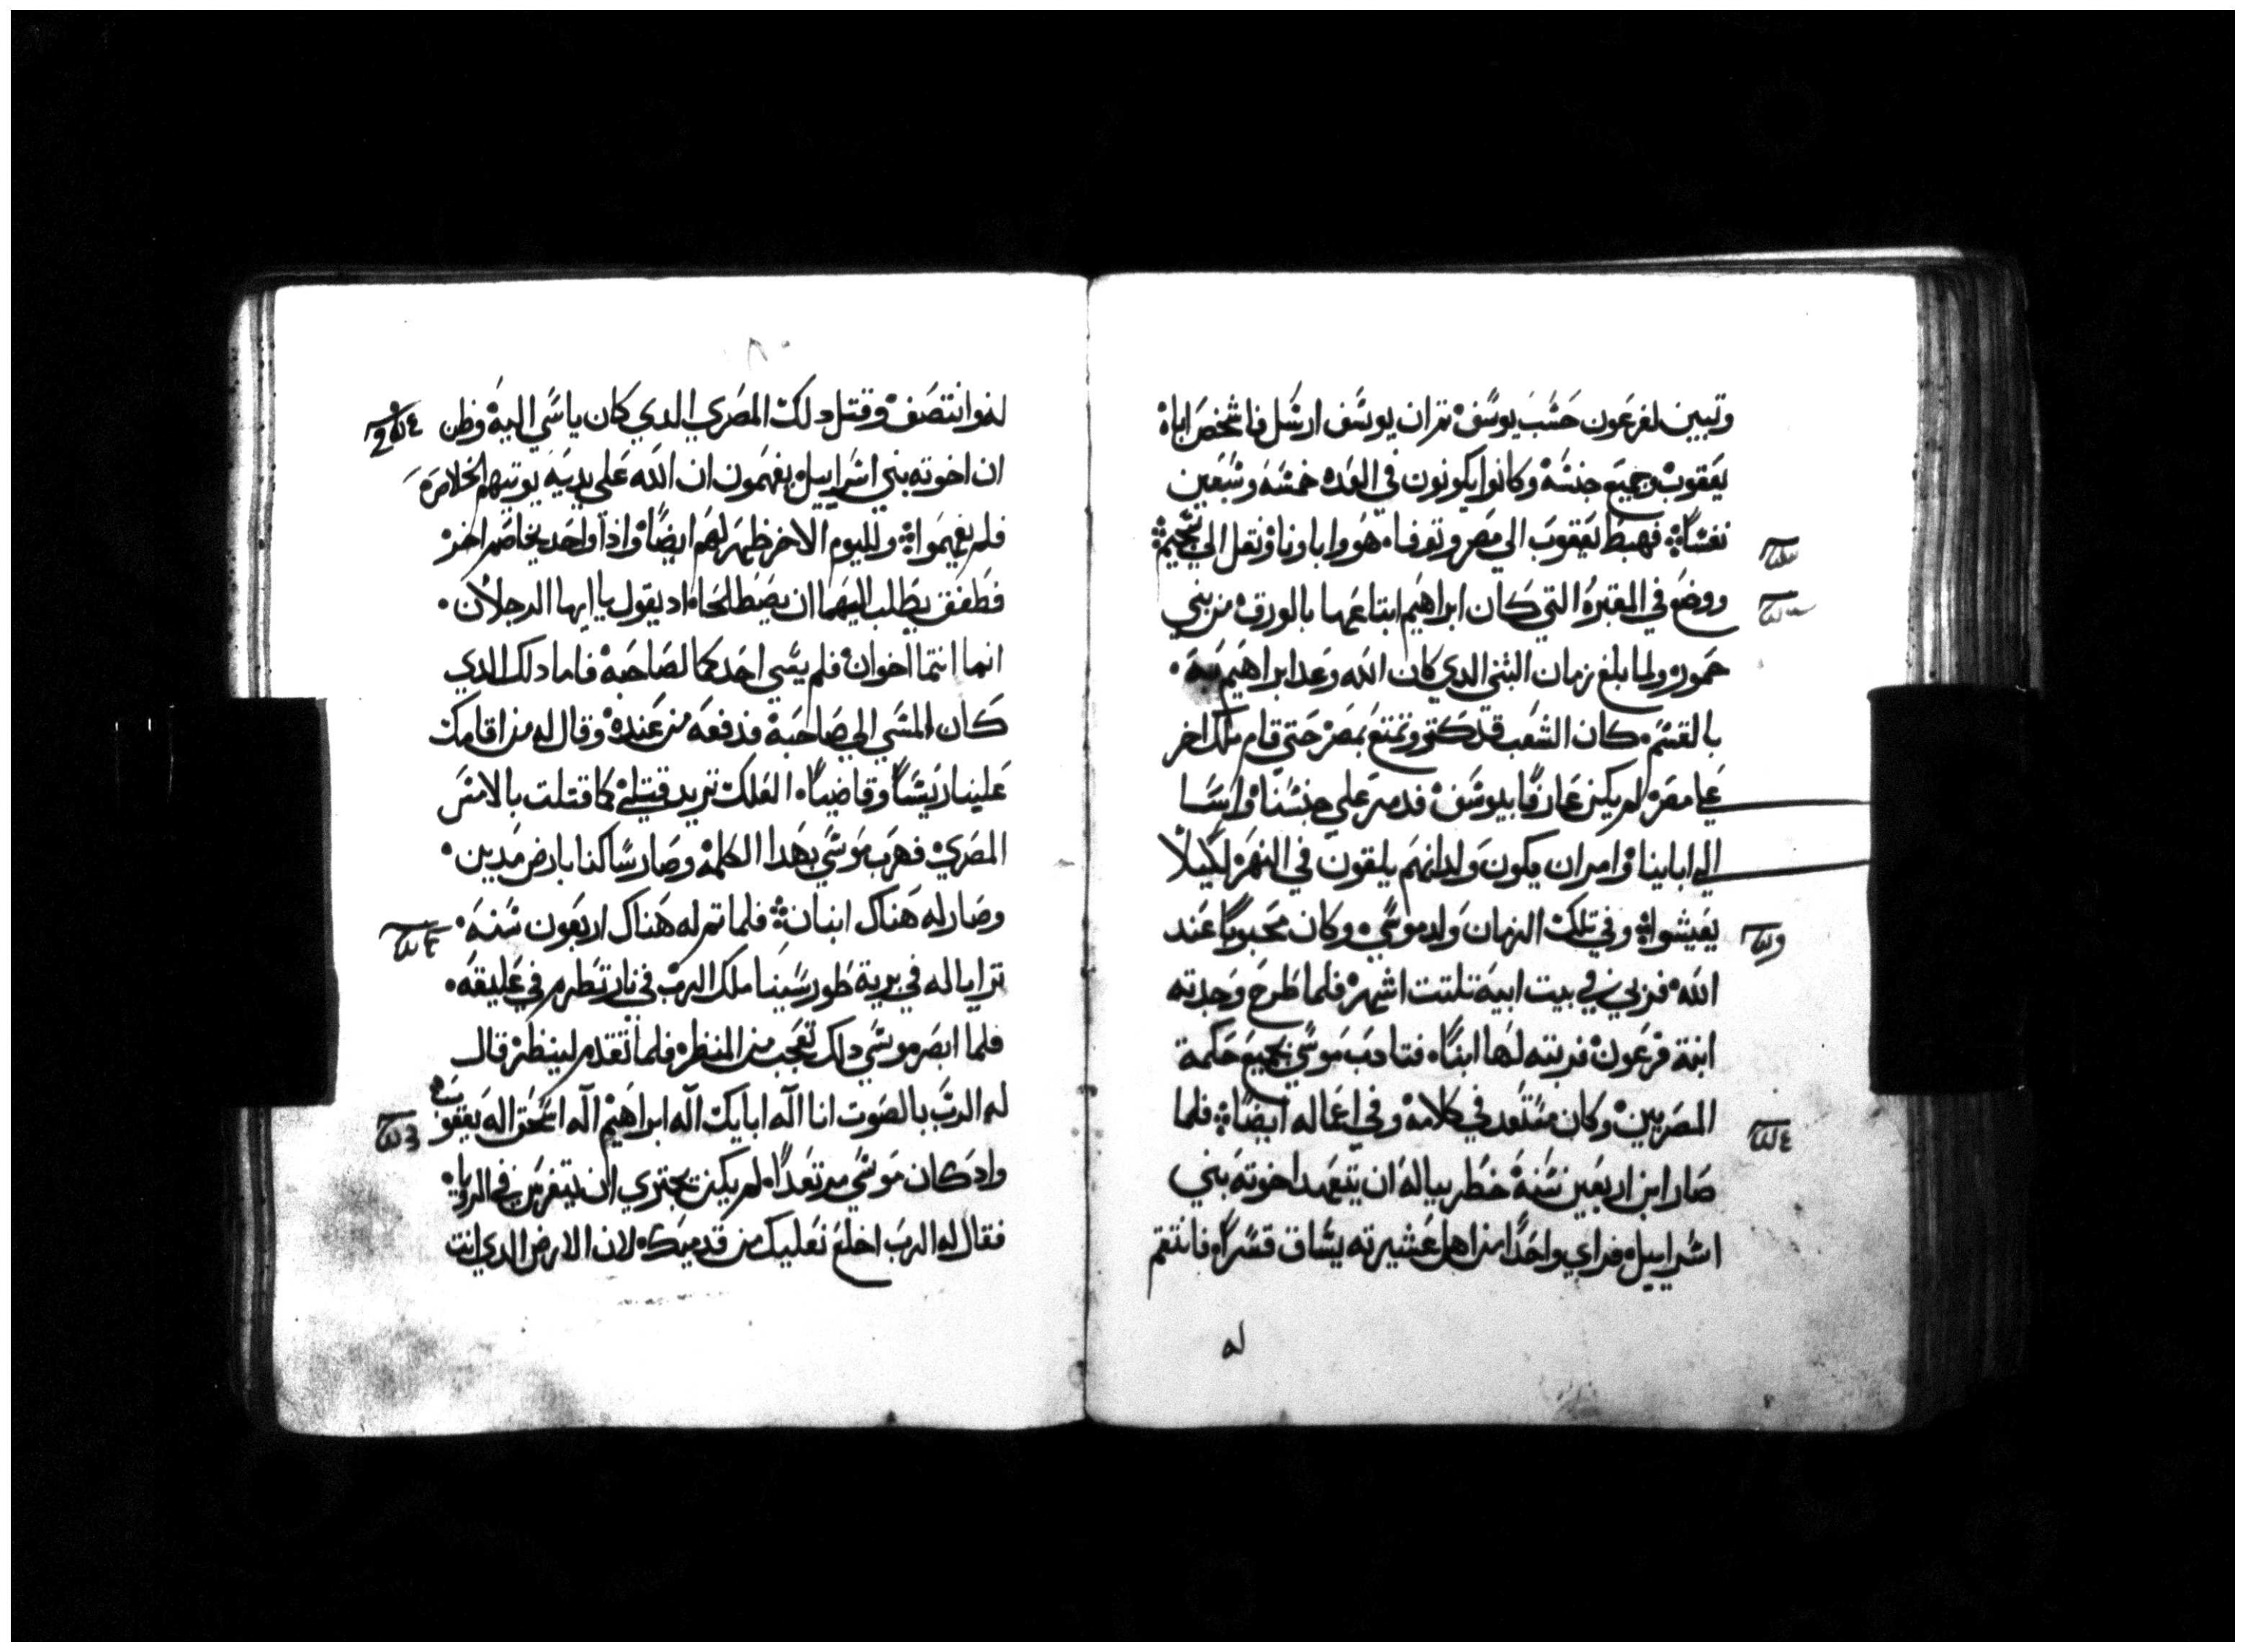 وتبين لفرعون حسب يوسف تم ان يوسف ارسل فاشخص اباه
يعقوب وجميع جنسه وكانوا يكونون في العده خمسه وسبعين
نفسًا فهبط يعقوب الي مصر وتوفاه هو واباونا ونقل الي شخيم
ووضع في المقبره التي كان ابراهيم ابتاعها بالورق من بني
حمور ولما بلغ زمان الشي الدي كان الله وعد ابراهيم به
بالقسم كان الشعب قد كتر وتمتع بمصر حتي قام ملك اخر
علي مصر لم يكن عارفًا بيوسف فدمر علي جنسنا واسا
الي اباينا وامر ان يكون ولدانهم يلقون في النهر لكيلا
يعيشوا وفي تلك الزمان ولد موسي وكان محبوبًا عند
الله فربي في بيت ابيه تلتت اشهر فلما طرح وجدته
ابنة فرعون فربته لها ابنًا فتادب موسي بجميع حكمة
المصريين وكان مستعد في كلامه وفي اعماله ايضًا فلما
صار ابن اربعين سنة خطر بباله ان يتعهد اخوته بني
اسراييل فراي واحدًا من اهل عشيرته يساق قسرًا فانتقم
له
له وانتصف وقتل دلك المصري الدي كان ياسي اليه وظن
ان اخوته بني اسراييل يفهمون ان الله علي يديه يوتيهم الخلاص
فلم يفهموا ولليوم الاخر ظهر لهم ايضًا واذا واحد يخاصم اخر
فطفق يطلب اليهما ان يصطلحا اد يقول يا ايها الرجلان
انما انتما اخوان فلم يسي احدكما لصاحبه فاما دلك الدي
كان المسي الي صاحبه فدفعه من عنده وقال له من اقامك
علينا ريسًا وقاضيًا العلك تريد قتلي كما قتلت بالامس
المصري فهرب موسي بهدا الكلمه وصار ساكنا بارض مدين
وصار له هناك ابنان فلما تم له هناك اربعون سنه
ترايا له في برية طور سينا ملك الرب في نار تضطرم في عليقه
فلما ابصر موسي دلك تعجب من المنظر فلما تقدم لينظر قال
له الرب بالصوت انا اله ابايك اله ابراهيم اله اسحق اله يعقوب
واد كان موسي مرتعدًا لم يكن يجتري ان يتفرس في الرويا
فقال له الرب اخلع نعليك من قدميك لان الارض الدي انت